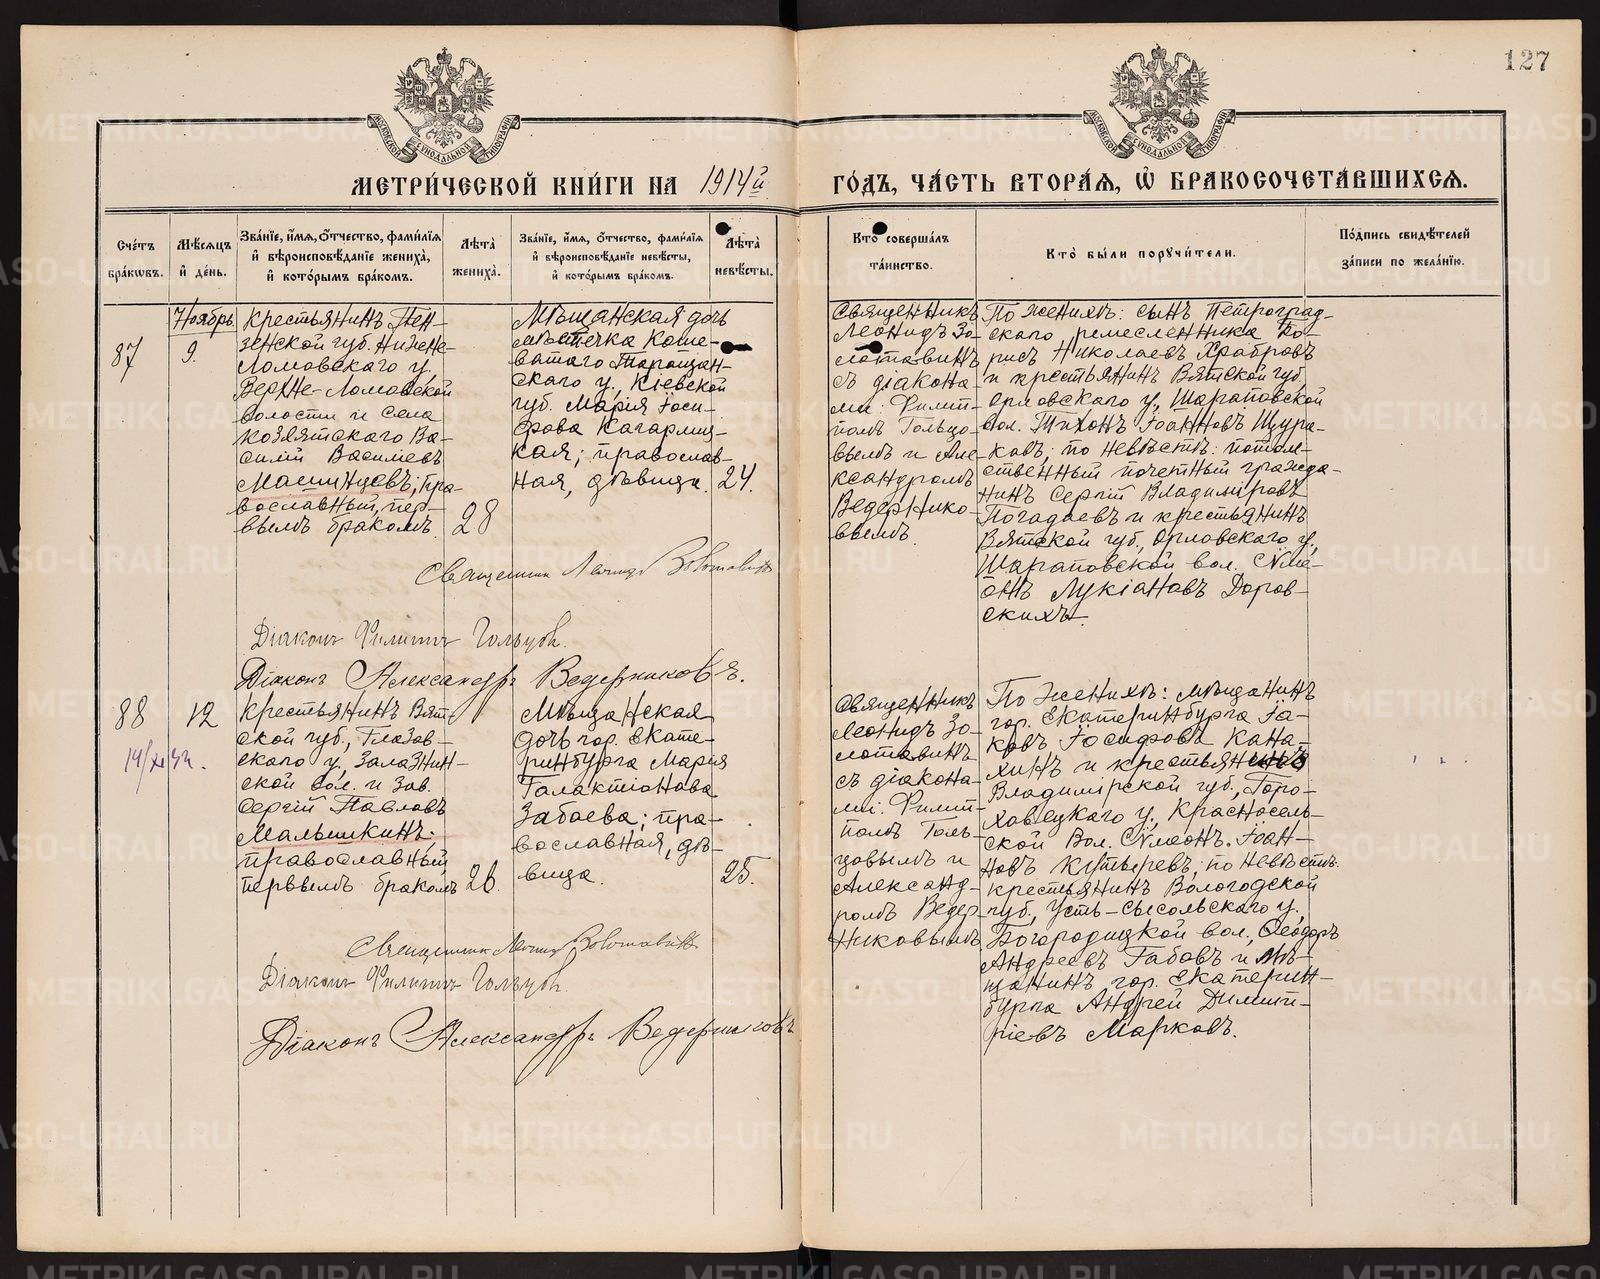 127
МЕТРИ́ЧЕСКОЙ КНИ́ГИ НА 1914й ГО́ДЪ, ЧА́СТЬ ВТОРА́Я, Ѽ БРАКОСОЧЕТА́ВШИХСЯ.
Сче́тъ бра́кωвъ.
Мѣ́сяцъ и́ де́нь.
Зва́нїе, и́мя, ѻ́тчество, фами́лїя и́ вѣроисповѣ́данїе жениха̀, и́ кото́рымъ бра́комъ.
Лѣ́та жениха̀.
Зва́нїе, и́мя, ѻ́тчество, фами́лїя и́ вѣроисповѣ́данїе невѣ́сты, и́ кото́рымъ бра́комъ.
Лѣ́та невѣ́сты.
Кто̀ соверша́лъ та́инство.
Кто̀ бы́ли поручи́тели.
По́дпись свидѣ́телей за́писи по жела́нїю.
Ноябрь
87
9.
Крестьянинъ Пен-
зенской губ. Нижне-
Ломовского у,
Верхне-Ломовской
волости и села
Козлятскаго Ва-
силій Василіевъ
Машинцевъ; пра-
вославный, пер-
вымъ бракомъ.
28
Мѣщанская дочь
мѣстечка Коше-
ватаго Таращан-
скаго у., Кіевской
губ. Марія Іоси-
фова Кагарлиц-
кая; православ-
ная, дѣвица.
24.
Священникъ
Леонидъ Зо-
лотавинъ
съ діакона-
ми: Филип-
помъ Гольцо-
вымъ и Але-
ксандромъ
Ведернико-
вымъ.
По женихѣ: сынъ Петроград-
скаго ремесленника Бо-
рисъ Николаевъ Храбровъ
и крестьянинъ Вятской губ.
Орловскаго у, Шараповской
вол. Тихонъ Іоанновъ Щура-
ковъ; по невѣстѣ: потом-
ственный почетный гражда-
нинъ Сергій Владиміровъ
Погадаевъ и крестьянинъ
Вятской губ., Орловскаго у,
Шараповской вол. Сѵме-
онъ Лукіановъ Доров-
скихъ.
Священникъ Леонидъ Золотавинъ
Діаконъ Филиппъ Гольцовъ.
Діаконъ Александръ Ведерниковъ.
88
12
Крестьянинъ Вят-
ской губ., Глазов-
скаго у, Залазнин-
ской вол. и зав.
Сергій Павловъ
Малышкинъ;
православный,
первымъ бракомъ
26.
Мѣщанская
дочь гор. Екате-
ринбурга Марія
Галактіонова
Забаева; пра-
вославная, дѣ-
вица.
25.
Священникъ
Леонидъ Зо-
лотавинъ
съ діакона-
ми: Филип-
помъ Голь-
цовымъ и
Александ-
ромъ Ведер-
никовымъ
По женихѣ: мѣщанинъ
гор. Екатеринбурга Іа-
ковъ Іосифовъ Кана-
хинъ и крестьянинъ
Владимірской губ., Горо-
ховецкаго у., Красносель-
ской вол. Сѵмеонъ Іоан-
новъ Кутыревъ; по невѣстѣ:
крестьянинъ Вологодской
губ., Усть-Сысольскаго у.,
Богородицкой вол., Ѳеодоръ
Андреевъ Габовъ и мѣ-
щанинъ гор. Екатерин-
бурга Андрей Димит-
ріевъ Марковъ.
Священникъ Леонидъ Золотавинъ
Діаконъ Филиппъ Гольцовъ.
Діаконъ Александръ Ведерниковъ
METRIKI.GASO-URAL.RU